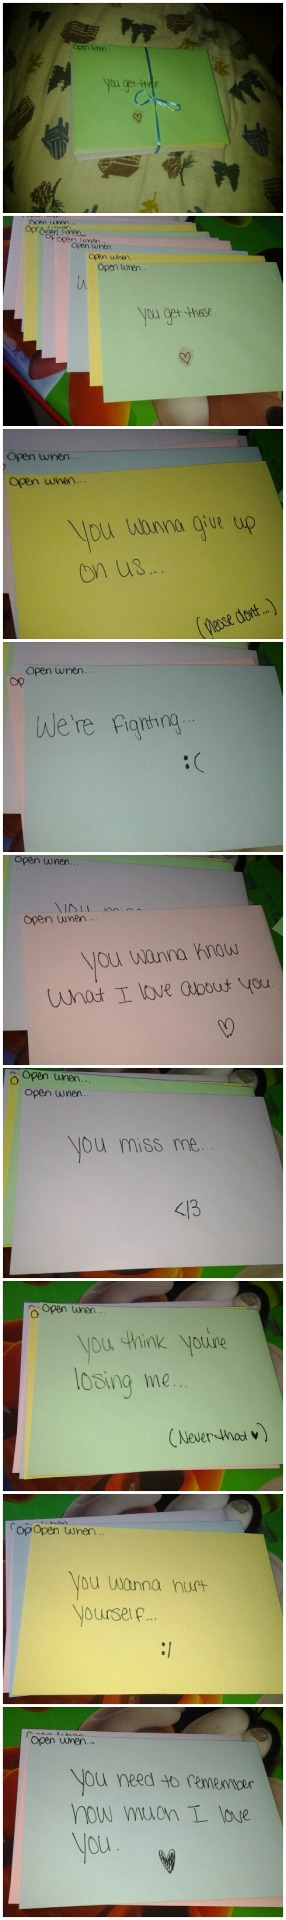 Open when...
You get these
Open when...
Open when...
Open when...
Open when...
Open when...
Open when...
You get these
Open when...
Open when...
You wanna give up
on us...
(please dont...)
Open when...
Op
We're Fighting...
:(
Open when...
You miss
Open when...
You wanna know
what I love about you.
Open when...
O
Open when...
You miss me...
</3
Open when...
O
You think you're
losing me...
(Never that ♥)
Op
Open when...
You wanna hurt
yourself...
:/
Open when...
You need to remember
how much I love
you.